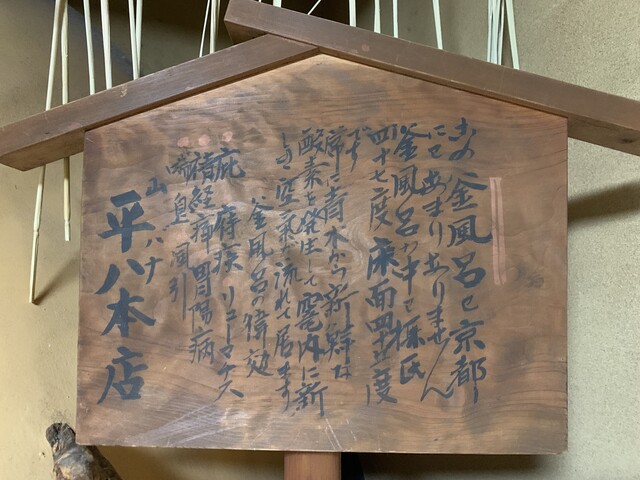 この釜風呂は京都
にはあまりありません
釜風呂の中で摂氏
四十七度 床面四十度
です
常に青木から新鮮な
酸素を発生して窯内に新
しき空氣が流れて居ます
釜風呂の特効
痔疾 リューマチス
神経痛 胃腸病
喘息 風引
山バナ
平八本店